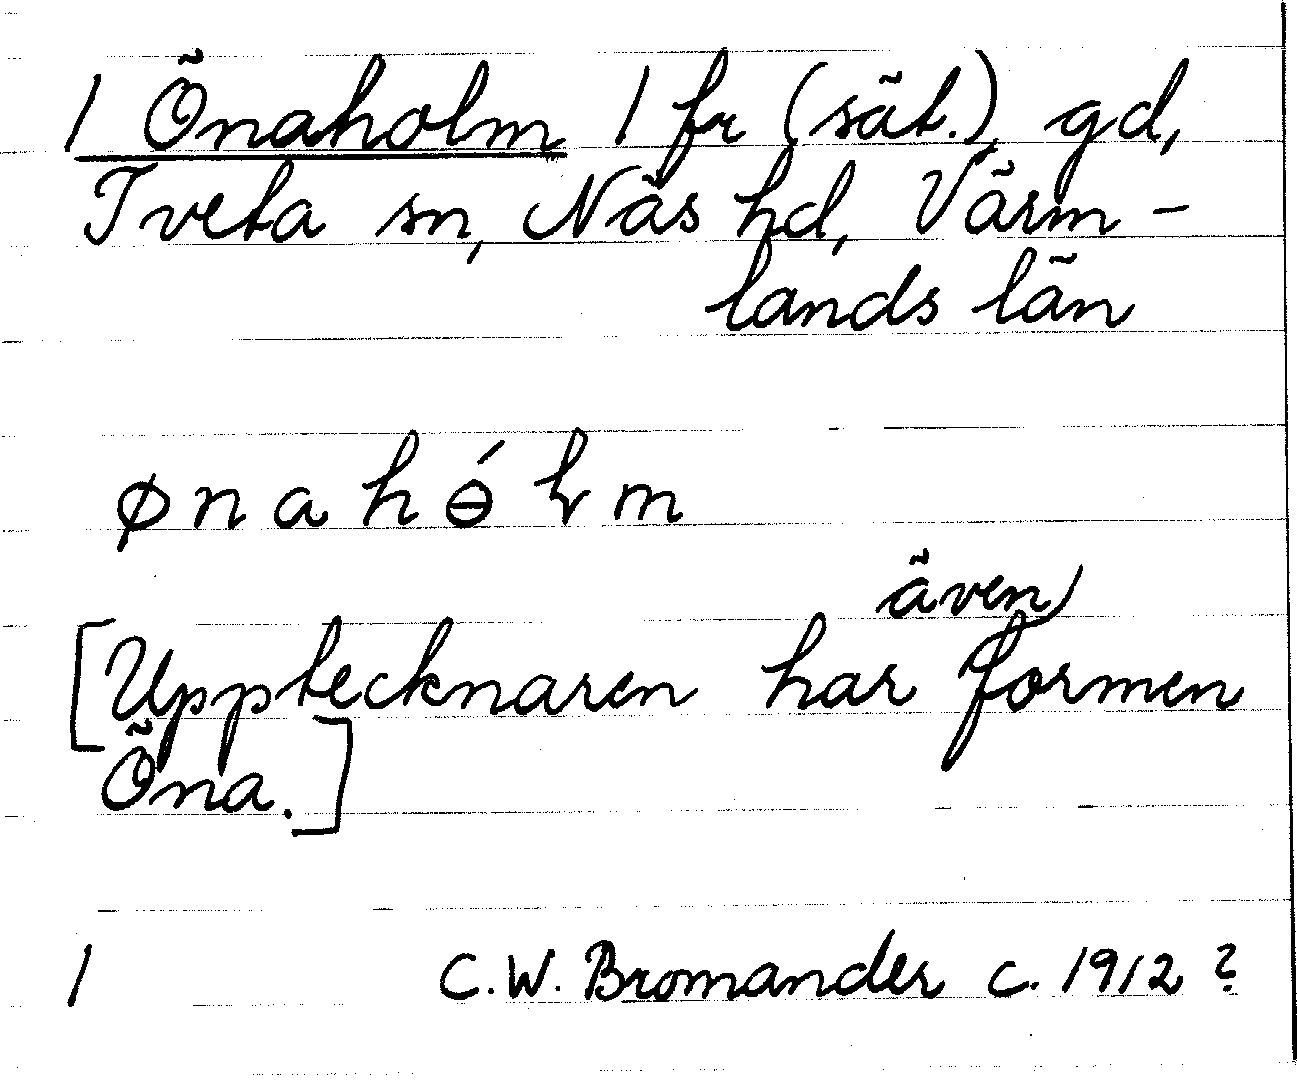 1 Önaholm 1 fr (sät.) gd,
Tveta sn, Näs hd, Värm-
lands län
ø n a h ɵ́ ɫ m
även
[Upptecknaren har formen
Öna.]
1 C.W. Bromander c. 1912 ?